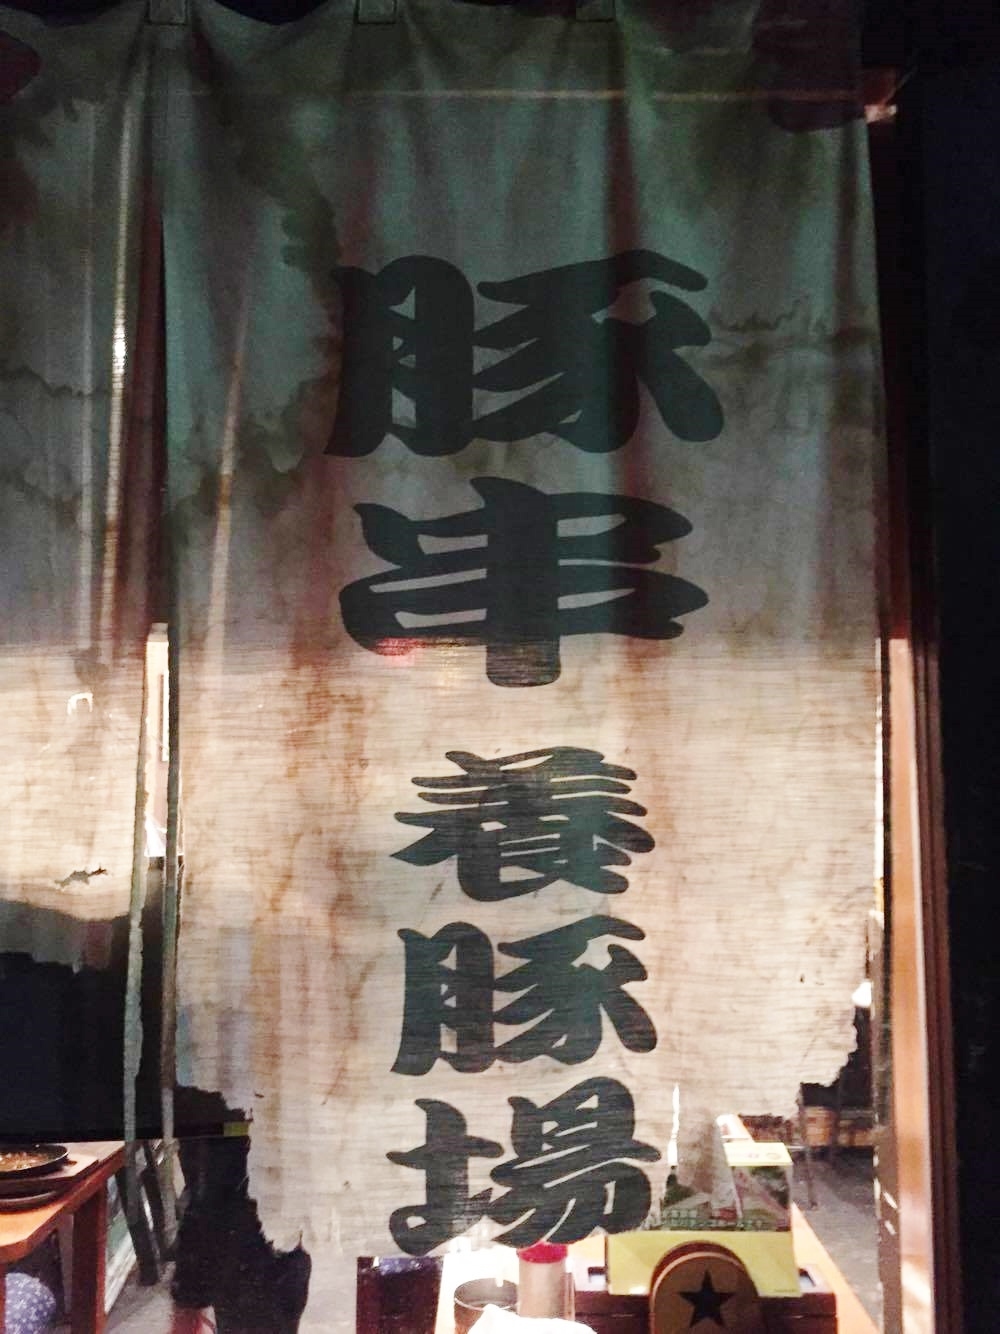 豚串
養豚場